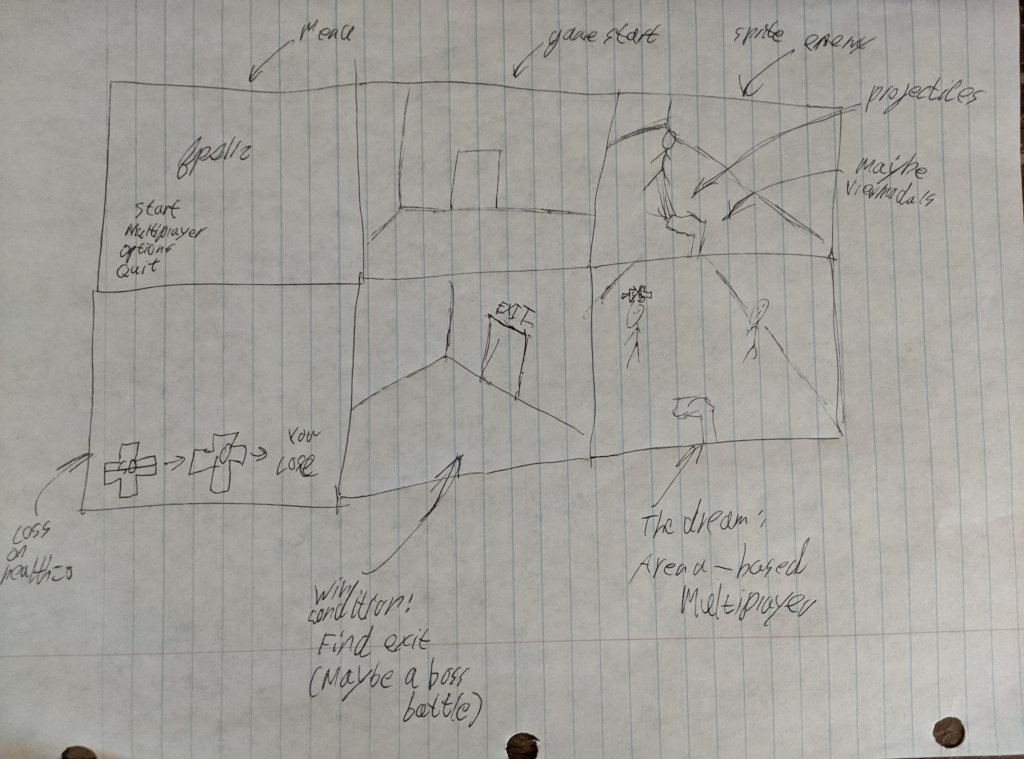 Menu
game start
sprite enemy
projectiles
Maybe
Viewmodels
Start
Multiplayer
Options
Quit
EXIT
You
Lose
Loss
on
health=0
Win
condition!
Find exit
(Maybe a boss
battle)
The dream:
Arena-based
Multiplayer